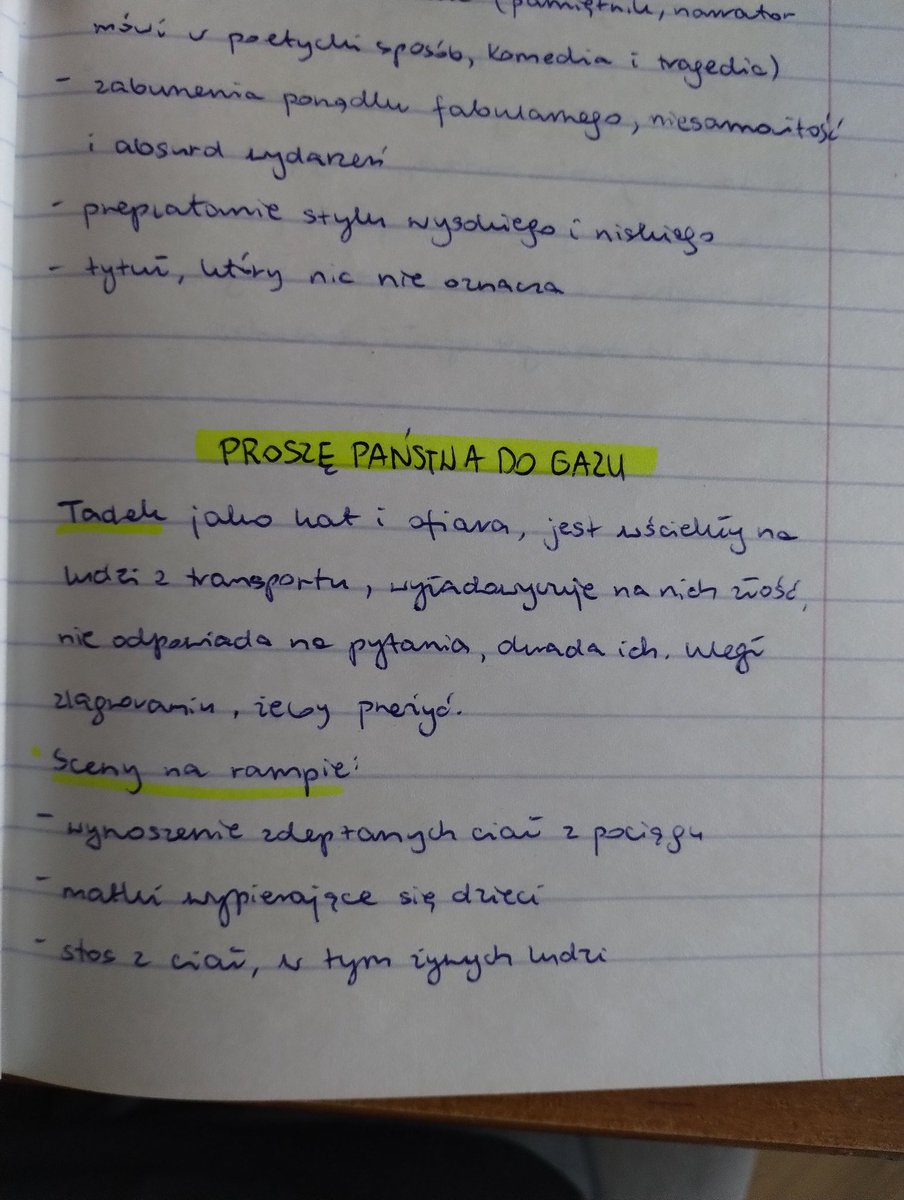 (pamiętnik, narrator
mówi w poetycki sposób, komedia i tragedia)
- zaburzenia porządku fabularnego, niesamowitość
i absurd wydarzeń
- przeplatanie stylu wysokiego i niskiego
- tytuł, który nic nie oznacza
PROSZĘ PAŃSTWA DO GAZU
Tadek jako kat i ofiara, jest wściekły na
ludzi z transportu, wyładowywuje na nich złość,
nie odpowiada na pytania, okrada ich. Uległ
zlagrowaniu, żeby przeżyć.
Sceny na rampie:
- wynoszenie zdeptanych ciał z pociągu
- matki wypierające się dzieci
- stos z ciał, w tym żywych ludzi